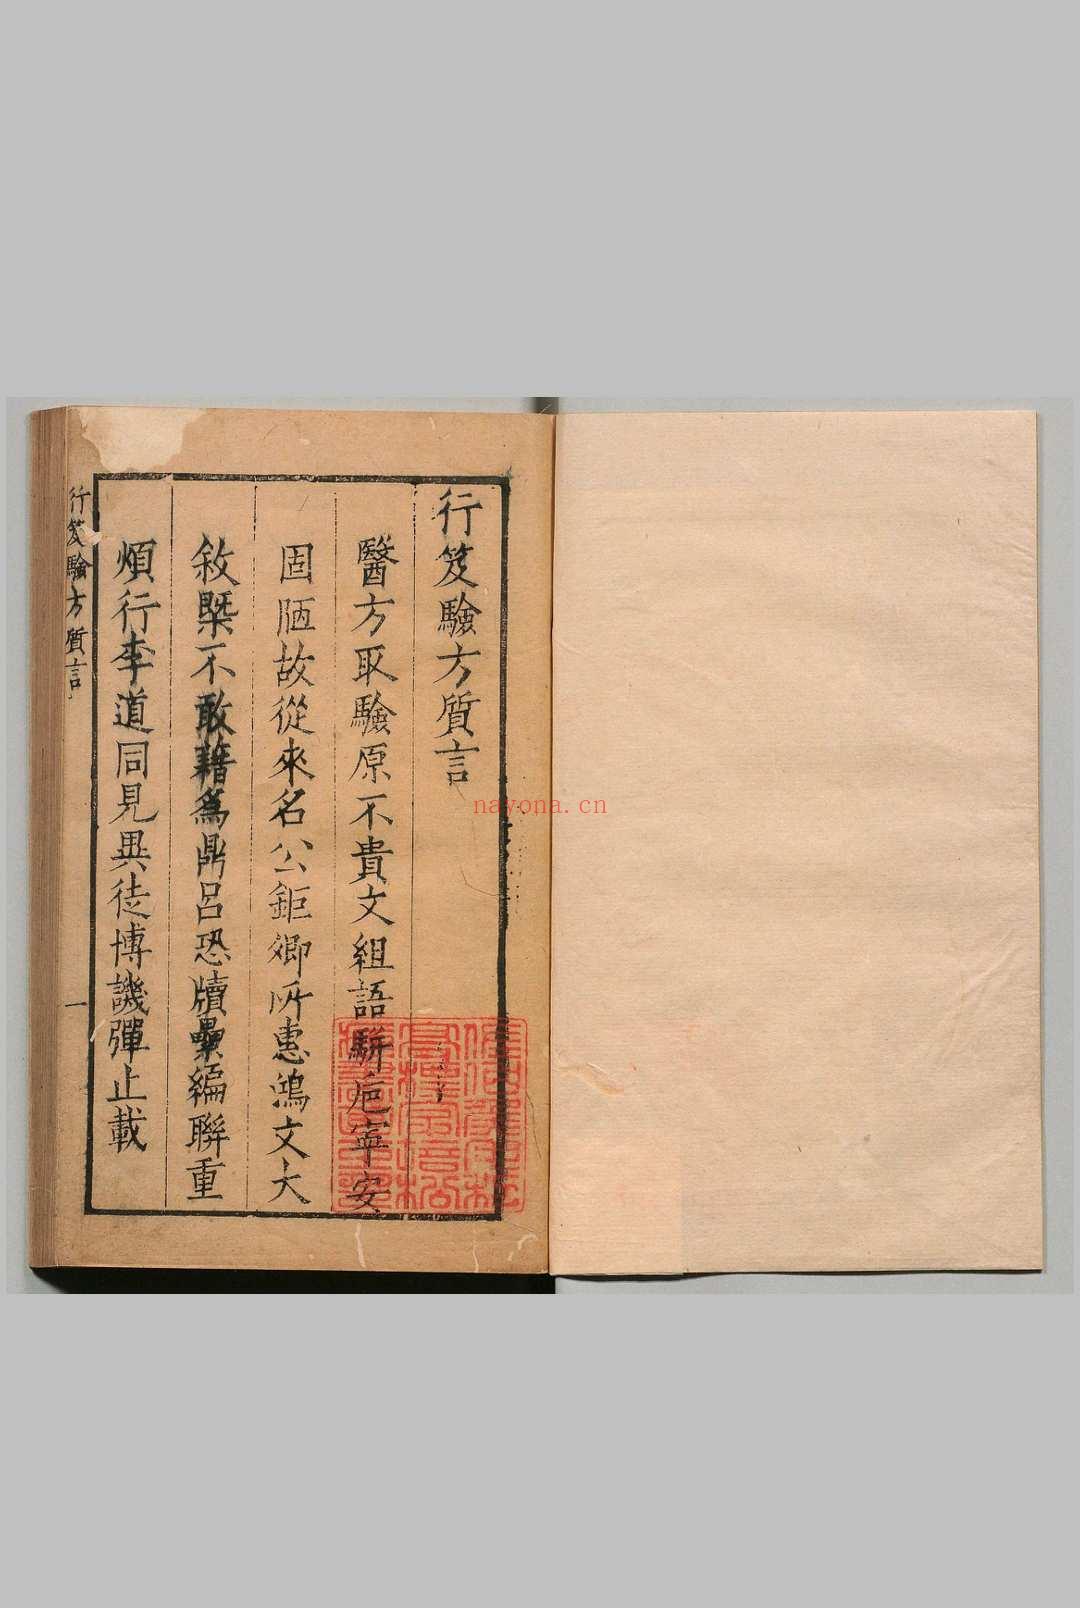 行笈驗方質言
醫方取驗原不貴文組語駢巵寧安
固陋故從來名公鉅卿所惠鴻文大
敘槩不敢藉爲鼎呂恐牘纍編聯重
煩行李道同見異徒博譏彈止載
行笈驗方質言
一
nayona.cn